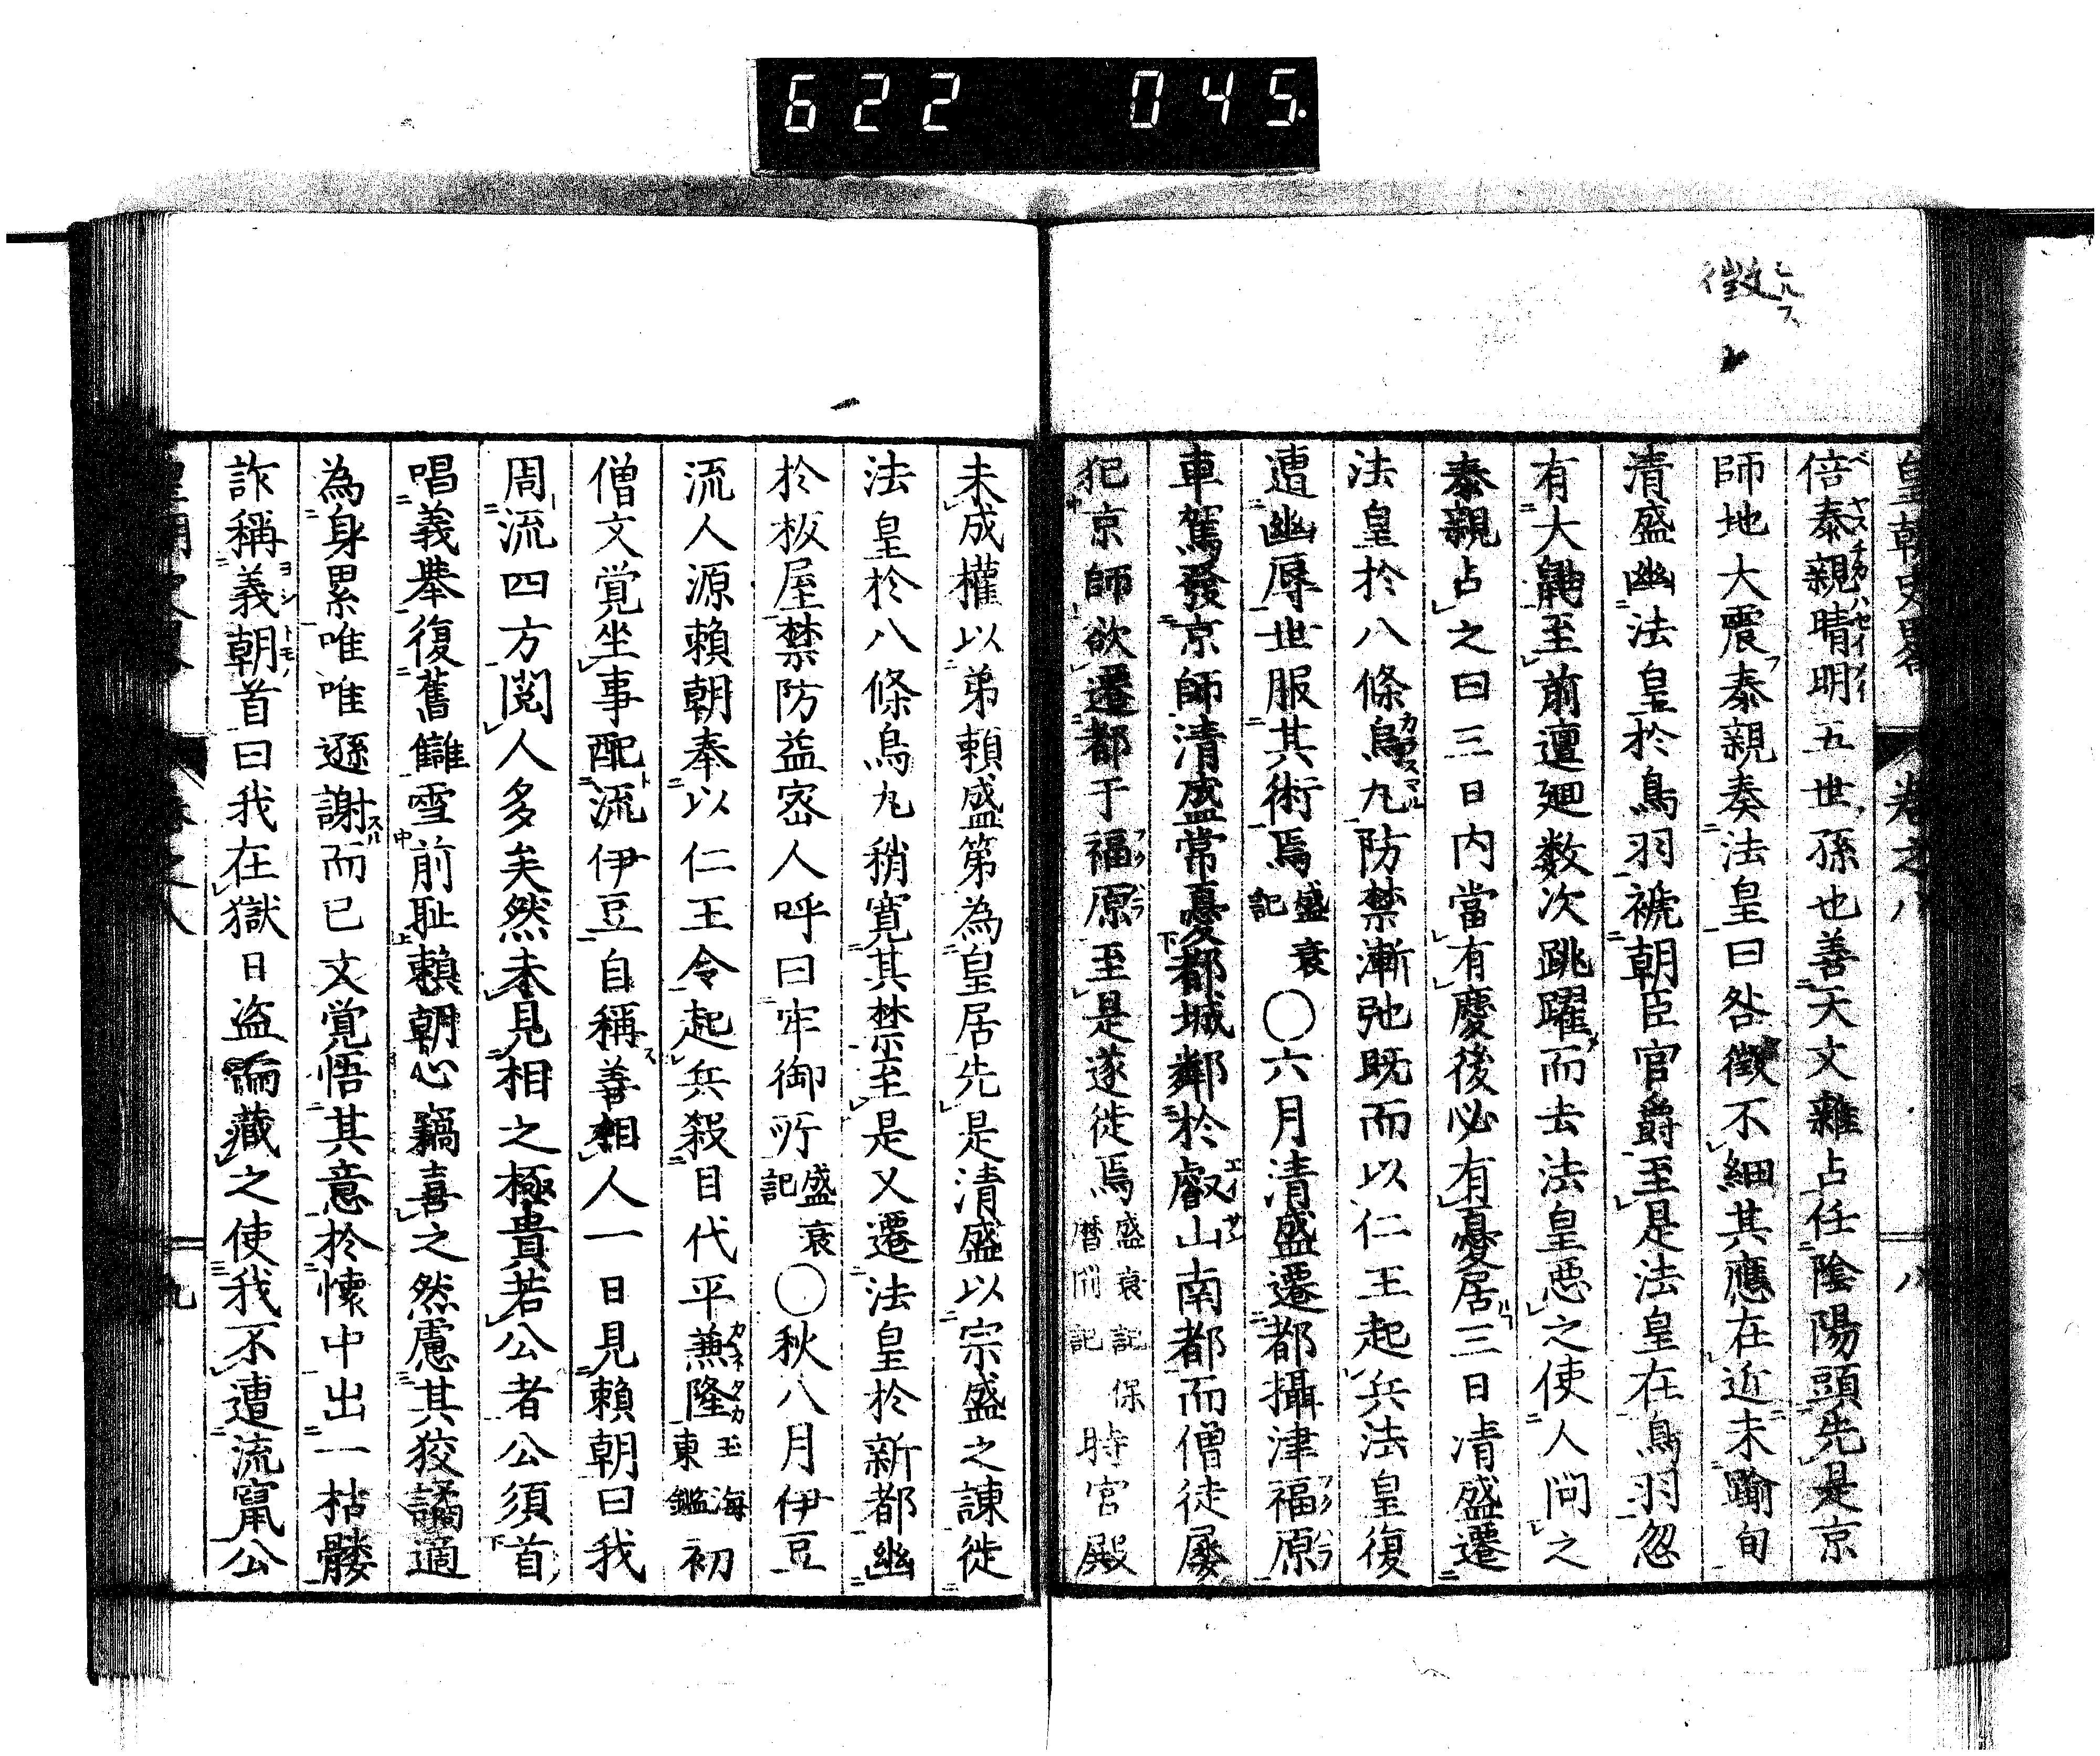 622 045.
徴
皇朝史畧 卷之八 八
倍泰親晴明五世孫也善天文雜占任陰陽頭先是京
師地大震泰親奏法皇曰咎徴不細其應在近未踰旬
清盛幽法皇於鳥羽褫朝臣官爵至是法皇在鳥羽忽
有大鼬至前邅廻数次跳躍而去法皇惡之使人問之
泰親占之曰三日内當有慶後必有憂居三日清盛遷
法皇於八條烏丸防禁漸弛既而以仁王起兵法皇復
遭幽辱世服其術焉盛衰記〇六月清盛遷都攝津福原
車駕發京師清盛常憂都城鄰於叡山南都而僧徒屡
犯京師欲遷都于福原至是遂徙焉盛衰記保曆間記時宮殿
未成權以弟賴盛第為皇居先是清盛以宗盛之諌徙
法皇於八條烏丸稍寬其禁至是又遷法皇於新都幽
於板屋禁防益宻人呼曰牢御所盛衰記〇秋八月伊豆
流人源賴朝奉以仁王令起兵殺目代平兼隆玉海東鑑初
僧文覚坐事配流伊豆自稱善相人一日見賴朝曰我
周流四方閲人多矣然未見相之極貴若公者公須首
唱義舉復舊讎雪前耻賴朝心竊喜之然慮其狡譎適
為身累唯唯遜謝而已文覚悟其意於懐中出一枯髏
詐稱義朝首曰我在獄日盗藏之使我不遭流竄公
九